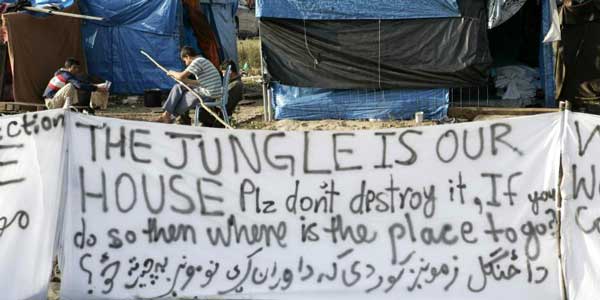 ction
THE JUNGLE IS OUR
HOUSE Plz don't destroy it, If you
do so then where is the place to go?
دا ځنګل زمونږ کور دی که دا وران کړی نو مونږ به چیرې ځو؟
go